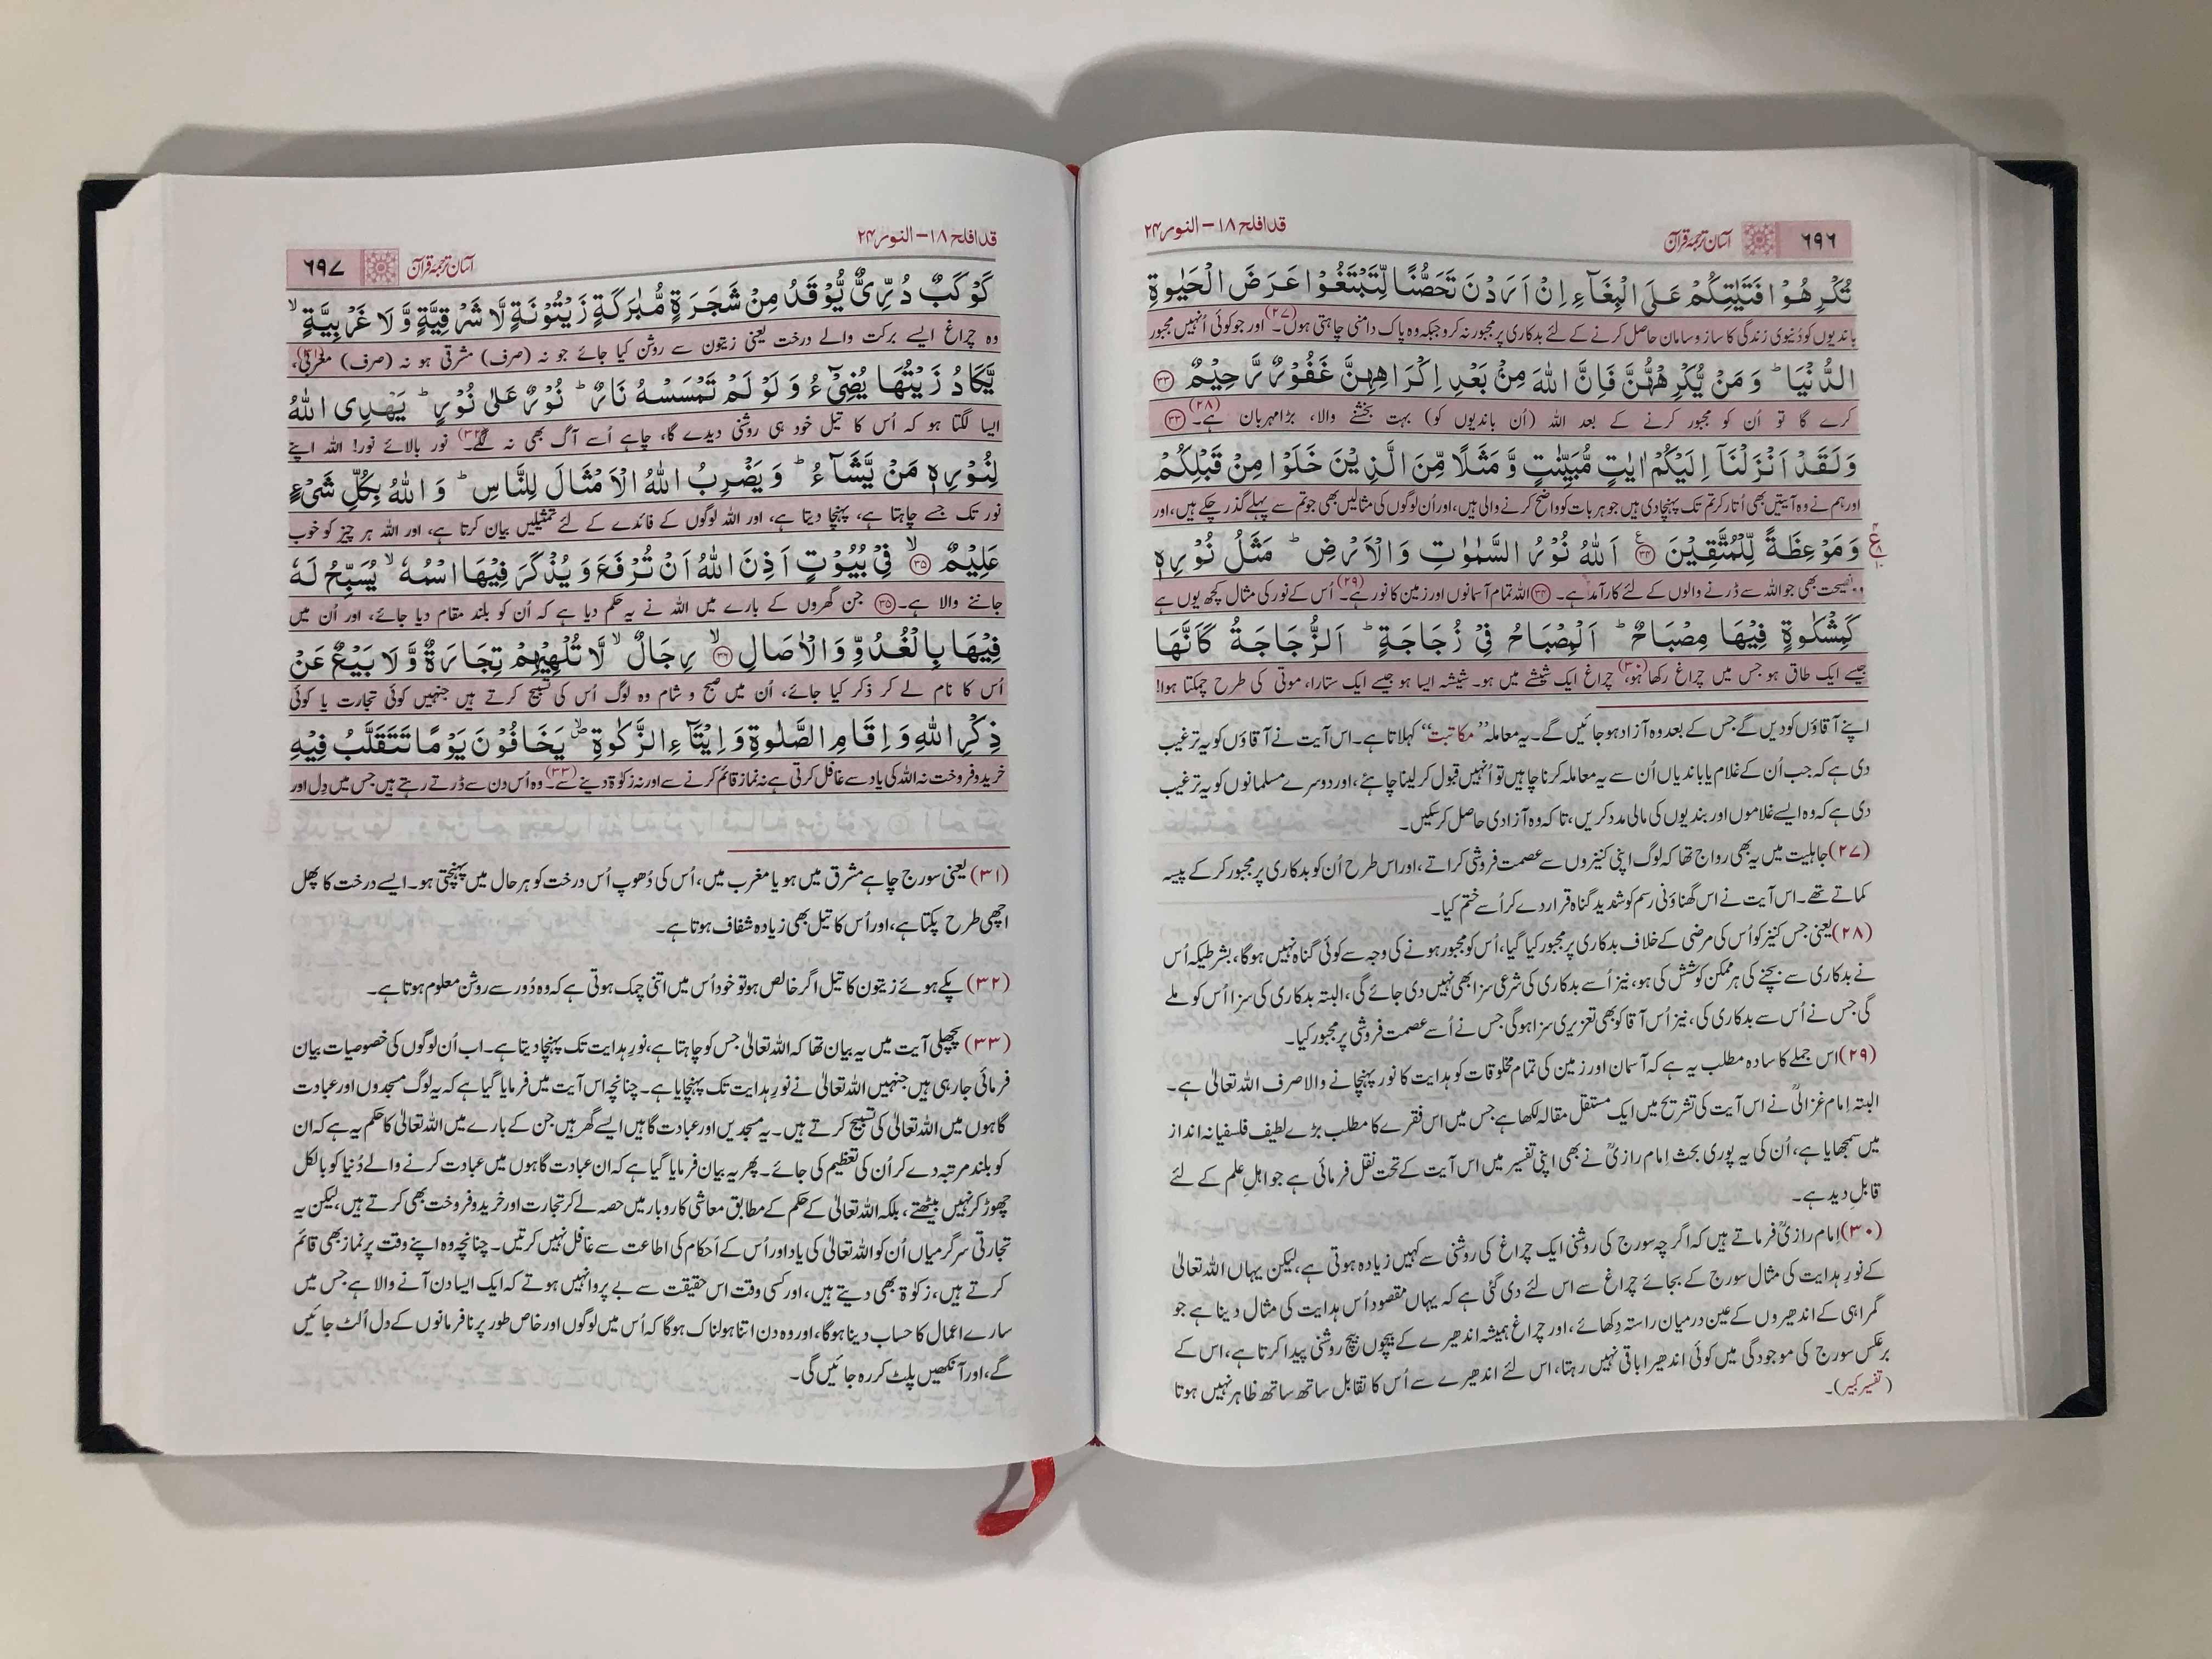 ۶۹۶ آسان ترجمۂ قرآن قد افلح ۱۸ – النور ۲۴
تُكْرِهُوْا فَتَيٰتِكُمْ عَلَى الْبِغَآءِ اِنْ اَرَدْنَ تَحَصُّنًا لِّتَبْتَغُوْا عَرَضَ الْحَيٰوةِ
باندیوں کو دُنیوی زندگی کا ساز و سامان حاصل کرنے کے لئے بدکاری پر مجبور نہ کرو جبکہ وہ پاک دامنی چاہتی ہوں۔(۲۷) اور جو کوئی اُنہیں مجبور
الدُّنْيَا ؕ وَ مَنْ يُّكْرِهْهُّنَّ فَاِنَّ اللّٰهَ مِنْۢ بَعْدِ اِكْرَاهِهِنَّ غَفُوْرٌ رَّحِيْمٌ ﴿۳۳﴾
کرے گا تو اُن کو مجبور کرنے کے بعد اللہ (اُن باندیوں کو) بہت بخشنے والا، بڑا مہربان ہے۔(۲۸) ﴿۳۳﴾
وَ لَقَدْ اَنْزَلْنَاۤ اِلَيْكُمْ اٰيٰتٍ مُّبَيِّنٰتٍ وَّ مَثَلًا مِّنَ الَّذِيْنَ خَلَوْا مِنْ قَبْلِكُمْ
اور ہم نے وہ آیتیں بھی اُتار کر تم تک پہنچادی ہیں جو ہر بات کو واضح کرنے والی ہیں، اور اُن لوگوں کی مثالیں بھی جو تم سے پہلے گذر چکے ہیں، اور
وَ مَوْعِظَةً لِّلْمُتَّقِيْنَ ﴿۳۴﴾ اَللّٰهُ نُوْرُ السَّمٰوٰتِ وَ الْاَرْضِ ؕ مَثَلُ نُوْرِهٖ
وہ نصیحت بھی جو اللہ سے ڈرنے والوں کے لئے کارآمد ہے۔ ﴿۳۴﴾ اللہ تمام آسمانوں اور زمین کا نور ہے۔(۲۹) اُس کے نور کی مثال کچھ یوں ہے
كَمِشْكٰوةٍ فِيْهَا مِصْبَاحٌ ؕ اَلْمِصْبَاحُ فِيْ زُجَاجَةٍ ؕ اَلزُّجَاجَةُ كَاَنَّهَا
جیسے ایک طاق ہو جس میں چراغ رکھا ہو،(۳۰) چراغ ایک شیشے میں ہو۔ شیشہ ایسا ہو جیسے ایک ستارا، موتی کی طرح چمکتا ہوا!
اپنے آقاؤں کو دیں گے جس کے بعد وہ آزاد ہو جائیں گے۔ یہ معاملہ ”مکاتبت“ کہلاتا ہے۔ اس آیت نے آقاؤں کو یہ ترغیب
دی ہے کہ جب اُن کے غلام یا باندیاں اُن سے یہ معاملہ کرنا چاہیں تو اُنہیں قبول کر لینا چاہئے، اور دوسرے مسلمانوں کو یہ ترغیب
دی ہے کہ وہ ایسے غلاموں اور بندیوں کی مالی مدد کریں، تاکہ وہ آزادی حاصل کر سکیں۔
(۲۷) جاہلیت میں یہ بھی رواج تھا کہ لوگ اپنی کنیزوں سے عصمت فروشی کراتے، اور اس طرح اُن کو بدکاری پر مجبور کر کے پیسہ
کماتے تھے۔ اس آیت نے اس گھناؤنی رسم کو شدید گناہ قرار دے کر اُسے ختم کیا۔
(۲۸) یعنی جس کنیز کو اُس کی مرضی کے خلاف بدکاری پر مجبور کیا گیا، اُس کو مجبور ہونے کی وجہ سے کوئی گناہ نہیں ہوگا، بشرطیکہ اُس
نے بدکاری سے بچنے کی ہر ممکن کوشش کی ہو، نیز اُسے بدکاری کی شرعی سزا بھی نہیں دی جائے گی، البتہ بدکاری کی سزا اُس کو ملے
گی جس نے اُس سے بدکاری کی، نیز اُس آقا کو بھی تعزیری سزا ہوگی جس نے اُسے عصمت فروشی پر مجبور کیا۔
(۲۹) اس جملے کا سادہ مطلب یہ ہے کہ آسمان اور زمین کی تمام مخلوقات کو ہدایت کا نور پہنچانے والا صرف اللہ تعالیٰ ہے۔
البتہ اِمام غزالیؒ نے اس آیت کی تشریح میں ایک مستقل مقالہ لکھا ہے جس میں اس فقرے کا مطلب بڑے لطیف فلسفیانہ انداز
میں سمجھایا ہے، اُن کی یہ پوری بحث اِمام رازیؒ نے بھی اپنی تفسیر میں اس آیت کے تحت نقل فرمائی ہے جو اہلِ علم کے لئے
قابلِ دید ہے۔
(۳۰) اِمام رازیؒ فرماتے ہیں کہ اگرچہ سورج کی روشنی ایک چراغ کی روشنی سے کہیں زیادہ ہوتی ہے، لیکن یہاں اللہ تعالیٰ
کے نورِ ہدایت کی مثال سورج کے بجائے چراغ سے اس لئے دی گئی ہے کہ یہاں مقصود اُس ہدایت کی مثال دینا ہے جو
گمراہی کے اندھیروں کے عین درمیان راستہ دِکھائے، اور چراغ ہمیشہ اندھیرے کے بیچوں بیچ روشنی پیدا کرتا ہے، اس کے
برعکس سورج کی موجودگی میں کوئی اندھیرا باقی نہیں رہتا، اس لئے اندھیرے سے اُس کا تقابل ساتھ ساتھ ظاہر نہیں ہوتا
(تفسیر کبیر)۔
قد افلح ۱۸ – النور ۲۴ آسان ترجمۂ قرآن ۶۹۷
كَوْكَبٌ دُرِّيٌّ يُّوْقَدُ مِنْ شَجَرَةٍ مُّبٰرَكَةٍ زَيْتُوْنَةٍ لَّا شَرْقِيَّةٍ وَّ لَا غَرْبِيَّةٍ ۙ
وہ چراغ ایسے برکت والے درخت یعنی زیتون سے روشن کیا جائے جو نہ (صرف) مشرقی ہو نہ (صرف) مغربی،(۳۱)
يَّكَادُ زَيْتُهَا يُضِيْٓءُ وَ لَوْ لَمْ تَمْسَسْهُ نَارٌ ؕ نُوْرٌ عَلٰى نُوْرٍ ؕ يَهْدِى اللّٰهُ
ایسا لگتا ہو کہ اُس کا تیل خود ہی روشنی دیدے گا، چاہے اُسے آگ بھی نہ لگے۔(۳۲) نور بالائے نور! اللہ اپنے
لِنُوْرِهٖ مَنْ يَّشَآءُ ؕ وَ يَضْرِبُ اللّٰهُ الْاَمْثَالَ لِلنَّاسِ ؕ وَ اللّٰهُ بِكُلِّ شَيْءٍ
نور تک جسے چاہتا ہے، پہنچا دیتا ہے، اور اللہ لوگوں کے فائدے کے لئے تمثیلیں بیان کرتا ہے، اور اللہ ہر چیز کو خوب
عَلِيْمٌ ﴿۳۵﴾ۙ فِيْ بُيُوْتٍ اَذِنَ اللّٰهُ اَنْ تُرْفَعَ وَ يُذْكَرَ فِيْهَا اسْمُهٗ ۙ يُسَبِّحُ لَهٗ
جاننے والا ہے۔ ﴿۳۵﴾ جن گھروں کے بارے میں اللہ نے یہ حکم دیا ہے کہ اُن کو بلند مقام دیا جائے، اور اُن میں
فِيْهَا بِالْغُدُوِّ وَ الْاٰصَالِ ﴿۳۶﴾ۙ رِجَالٌ ۙ لَّا تُلْهِيْهِمْ تِجَارَةٌ وَّ لَا بَيْعٌ عَنْ
اُس کا نام لے کر ذکر کیا جائے، اُن میں صبح و شام وہ لوگ اُس کی تسبیح کرتے ہیں جنہیں کوئی تجارت یا کوئی
ذِكْرِ اللّٰهِ وَ اِقَامِ الصَّلٰوةِ وَ اِيْتَآءِ الزَّكٰوةِ ۪ۙ يَخَافُوْنَ يَوْمًا تَتَقَلَّبُ فِيْهِ
خرید و فروخت نہ اللہ کی یاد سے غافل کرتی ہے نہ نماز قائم کرنے سے اور نہ زکوٰۃ دینے سے۔(۳۳) وہ اُس دن سے ڈرتے رہتے ہیں جس میں دِل اور
(۳۱) یعنی سورج چاہے مشرق میں ہو یا مغرب میں، اُس کی دُھوپ اُس درخت کو ہر حال میں پہنچتی ہو۔ ایسے درخت کا پھل
اچھی طرح پکتا ہے، اور اُس کا تیل بھی زیادہ شفاف ہوتا ہے۔
(۳۲) پکے ہوئے زیتون کا تیل اگر خالص ہو تو خود اُس میں اتنی چمک ہوتی ہے کہ وہ دُور سے روشن معلوم ہوتا ہے۔
(۳۳) پچھلی آیت میں یہ بیان تھا کہ اللہ تعالیٰ جس کو چاہتا ہے، نورِ ہدایت تک پہنچا دیتا ہے۔ اب اُن لوگوں کی خصوصیات بیان
فرمائی جا رہی ہیں جنہیں اللہ تعالیٰ نے نورِ ہدایت تک پہنچایا ہے۔ چنانچہ اس آیت میں فرمایا گیا ہے کہ یہ لوگ مسجدوں اور عبادت
گاہوں میں اللہ تعالیٰ کی تسبیح کرتے ہیں۔ یہ مسجدیں اور عبادت گاہیں ایسے گھر ہیں جن کے بارے میں اللہ تعالیٰ کا حکم یہ ہے کہ ان
کو بلند مرتبہ دے کر اُن کی تعظیم کی جائے۔ پھر یہ بیان فرمایا گیا ہے کہ ان عبادت گاہوں میں عبادت کرنے والے دُنیا کو بالکل
چھوڑ کر نہیں بیٹھتے، بلکہ اللہ تعالیٰ کے حکم کے مطابق معاشی کاروبار میں حصہ لے کر تجارت اور خرید و فروخت بھی کرتے ہیں، لیکن یہ
تجارتی سرگرمیاں اُن کو اللہ تعالیٰ کی یاد اور اُس کے اَحکام کی اطاعت سے غافل نہیں کرتیں۔ چنانچہ وہ اپنے وقت پر نماز بھی قائم
کرتے ہیں، زکوٰۃ بھی دیتے ہیں، اور کسی وقت اس حقیقت سے بے پروا نہیں ہوتے کہ ایک ایسا دن آنے والا ہے جس میں
سارے اعمال کا حساب دینا ہوگا، اور وہ دن اتنا ہولناک ہوگا کہ اُس میں لوگوں اور خاص طور پر نافرمانوں کے دل اُلٹ جائیں
گے، اور آنکھیں پلٹ کر رہ جائیں گی۔